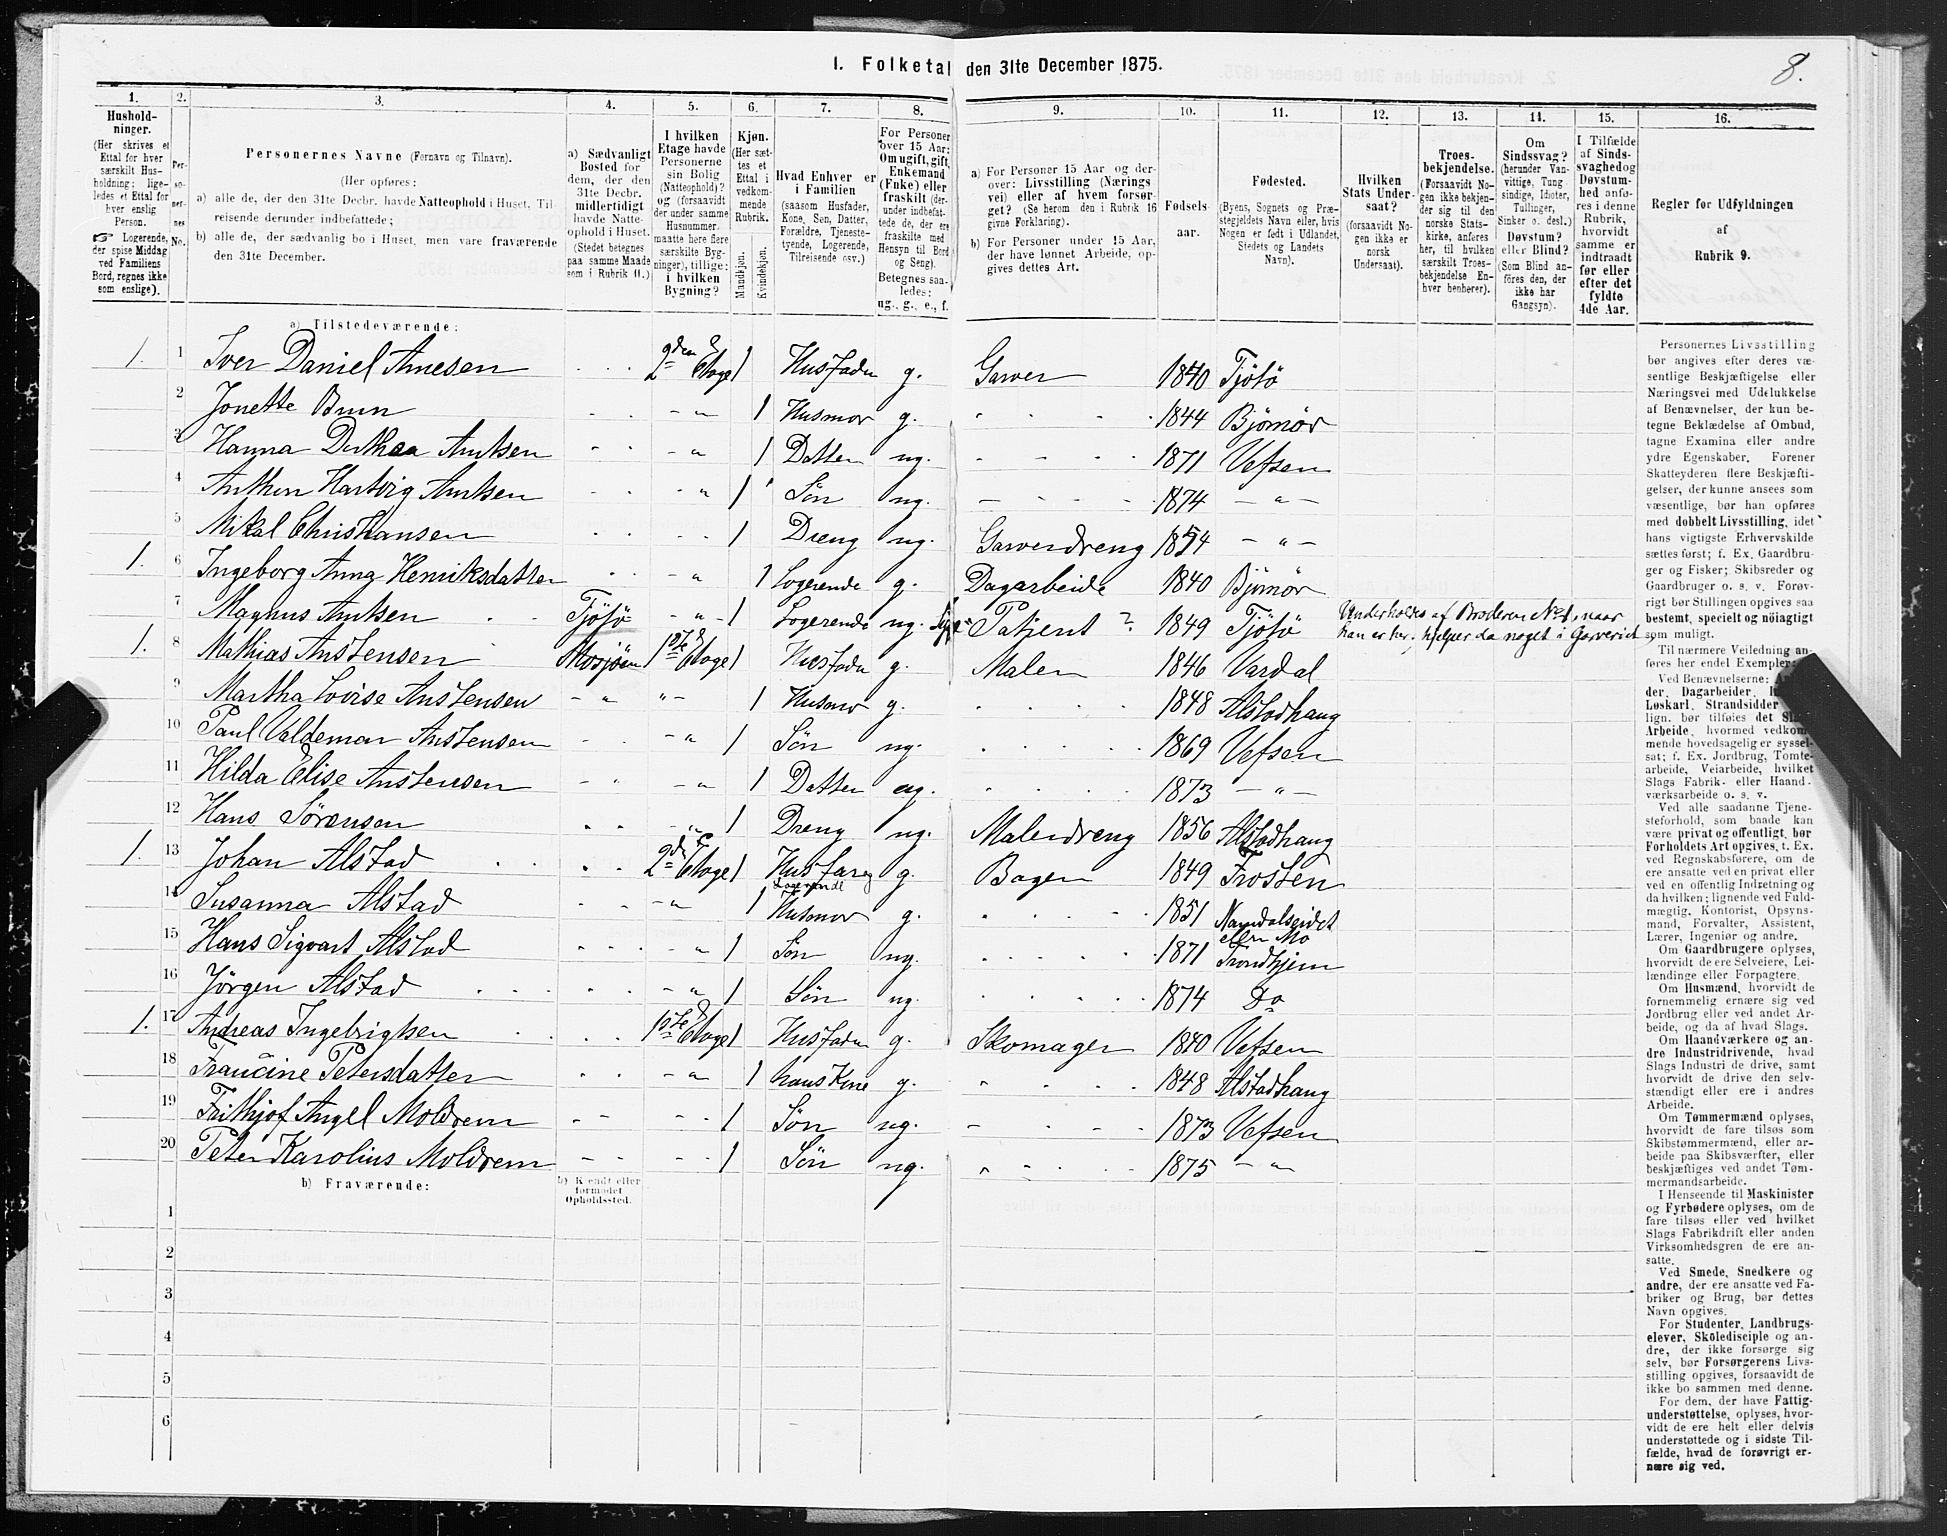 8.
1. Folketal den 31te December 1875.
1. 2. 3. 4. 5. 6. 7. 8. 9. 10. 11. 12. 13. 14. 15. 16.
Hushold-
ninger.
(Her skrives et
Ettal for hver
særskilt Hus-
holdning; lige-
ledes et Ettal for
hver enslig
Person.
☞ Logerende,
der spise Middag
ved Familiens
Bord, regnes ikke
som enslige).
Per-
so-
ner-
nes
No.
Personernes Navne (Fornavn og Tilnavn).
(Her opføres:
a) alle de, der den 31te Decbr. havde Natteophold i Huset, Til-
reisende derunder indbefattede;
b) alle de, der sædvanlig bo i Huset, men vare fraværende
den 31te December.
a) Sædvanligt
Bosted for
dem, der den
31te Decbr.
midlertidigt
havde Natte-
ophold i Huset.
(Stedet betegnes
paa samme Maade
som i Rubrik 11.)
I hvilken
Etage havde
Personerne
sin Bolig
(Natteophold)?
og (forsaavidt
der under samme
Husnummer
maatte høre flere
særskilte Byg-
ninger), tillige:
i hvilken
Bygning?
Kjøn.
(Her sæt-
tes et
Ettal i
vedkom-
mende
Rubrik.
Mandkjøn.
Kvindekjøn.
Hvad Enhver er
i Familien
(saasom Husfader,
Kone, Søn, Datter,
Forældre, Tjeneste-
tyende, Logerende,
Tilreisende osv.)
For Personer
over 15 Aar:
Om ugift, gift,
Enkemand
(Enke) eller
fraskilt (der-
under indbefat-
tede de, der ere
fraskilte med
Hensyn til Bord
og Seng).
Betegnes saa-
ledes:
ug., g., e., f.
a) For Personer 15 Aar og der-
over: Livsstilling (Nærings
vei) eller af hvem forsør-
get? (Se herom den i Rubrik 16
givne Forklaring).
b) For Personer under 15 Aar,
der have lønnet Arbeide, op-
gives dettes Art.
Fødsels-
aar.
Fødested.
(Byens, Sognets og Præ-
stegjeldets Navn eller, hvis
Nogen er født i Udlandet,
Stedets og Landets
Navn).
Hvilken
Stats Under-
saat?
(forsaavidt No-
gen ikke er
norsk
Undersaat).
Troes-
bekjendelse.
(Forsaavidt No-
gen ikke bekjen-
der sig til den
norske Stats-
kirke, anføres
her, til hvilken
særskilt Troes-
bekjendelse En-
hver henhører).
Om
Sindssvag?
(herunder Van-
vittige, Tung-
sindige, Idioter,
Tullinger,
Sinker o. desl.)
Døvstum?
eller Blind?
(Som Blind an-
føres den, der
ikke har
Gangsyn).
I Tilfælde
af Sinds-
svaghed og
Døvstum-
hed anfø-
res i denne
Rubrik,
hvorvidt
samme er
indtraadt
før eller
efter det
fyldte
4de Aar.
Regler for Udfyldningen
af
Rubrik 9.
a) Tilstedeværende:
1. 1 Iver Daniel Arnesen 2den Etage 1 Husfader g. Garver 1840 Tjötö
2 Jonette Brun - " 1 Husmor g. 1844 Bjørnør
3 Hanna Dorthea Arntsen - " 1 Datter ug. 1871 Vefsen
4 Anthon Hartvig Arntsen - " 1 Søn ug. 1874 - " -
5 Mikal Christiansen 1 Dreng ug. Garverdreng 1854 - " -
1. 6 Ingeborg Anna Henriksdatter - " 1 Logerende g. Dagarbeide 1840 Bjørnør
7 Magnus Arntsen Tjötö - " - 1 Logerende ug. Patjent ? 1849 Tjötö Underholdes af Broderen No 1, naar
han er her, hjelper da noget i Garveriet
1. 8 Mathias Anstensen Mosjöen 1ste Etage 1 Husfader g. Maler 1846 Vardal
9 Martha Lovise Anstensen - " " - 1 Husmor g. 1848 Alstadhaug
10 Paul Valdemar Anstensen - " 1 Søn ug. 1869 Vefsen
11 Hilda Elise Anstensen - " 1 Datter ug. 1873 - " -
12 Hans Sörensen " 1 Dreng ug. Malerdreng 1856 Alstadhaug
1. 13 Johan Alstad 2d Etage 1 Husfar g. Bager 1849 Frosten
Logerende
14 Susanna Alstad - " 1 Husmor g. 1851 Namdalseidet
eller Mo
15 Hans Sigvart Alstad " 1 Søn ug. 1871 Trondhjem
16 Jörgen Alstad - " 1 Søn ug. 1874 Do
1. 17 Andreas Ingebrigtsen 1ste Etage 1 Husfader g. Skomager 1840 Vefsen
18 Francine Petersdatter " 1 hans Kone g. 1848 Alstadhaug
19 Frithjof Angel Moldrem 1 Søn ug. 1873 Vefsen
20 Peter Karolius Moldrem 1 Søn ug. 1875 - "
b) Fraværende:
b) Kjendt eller
formodet
Opholdssted.
1
2
3
4
5
6
Personernes Livsstilling
bør angives efter deres væ-
sentlige Beskjæftigelse eller
Næringsvei med Udelukkelse
af Benævnelser, der kun be-
tegne Beklædelse af Ombud,
tagne Examina eller andre
ydre Egenskaber. Forener
Skatteyderen flere Beskjæfti-
gelser, der kunne ansees som
væsentlige, bør han opføres
med dobbelt Livsstilling, idet
hans vigtigste Erhvervskilde
sættes først; f. Ex. Gaardbru-
ger og Fisker; Skibsreder og
Gaardbruger o. s. v. Forøv-
rigt bør Stillingen opgives saa
bestemt, specielt og nöiagtigt
som muligt.
Til nærmere Veiledning an-
føres her endel Exempler:
Ved Benævnelserne:
der, Dagarbeider,
Løskarl, Strandsidder
lign. bør tilføies det
Arbeide, hvormed vedkom-
mende hovedsagelig er syssel-
sat; f. Ex. Jordbrug, Tomte-
arbeide, Veiarbeide, hvilket
Slags Fabrik- eller Haand-
værksarbeide o. s. v.
Ved alle saadanne Tjene-
steforhold, som baade kan
være privat og offentligt, bør
Forholdets Art opgives, t. Ex.
ved Regnskabsførere, om de
ere ansatte ved en privat eller
ved en offentlig Indretning og
da hvilken; lignende ved Fuld-
mægtig, Kontorist, Opsyns-
mand, Forvalter, Assistent,
Lærer, Ingeniør og andre.
Om Gaardbrugere oplyses,
hvorvidt de ere Selveiere, Lei-
lændinge eller Forpagtere.
Om Husmænd, hvorvidt de
fornemmelig ernære sig ved
Jordbrug eller ved andet Ar-
beide, og da af hvad Slags.
Om Haandværkere og an-
dre Industridrivende, hvad
Slags Industri de drive, samt
hvorvidt de drive den selv-
stændigt eller ere i andres
Arbeide.
Om Tømmermænd oplyses,
hvorvidt de fare tilsøs som
Skibstømmermænd, eller ar-
beide paa Skibsværfter, eller
beskjæftiges ved andet Töm-
mermandsarbeide.
I Henseende til Maskinister
og Fyrbødere oplyses, om de
fare tilsøs eller ved hvilket
Slags Fabrikdrift eller anden
Virksomhedsgren de ere an-
satte.
Ved Smede, Snedkere og
andre, der ere ansatte ved Fa-
briker og Brug, bør dettes
Navn opgives.
For Studenter, Landbrugs-
elever, Skoledisciple og an-
dre, der ikke forsørge sig
selv, bør Forsørgerens Livs-
stilling opgives, forsaavidt de
ikke bo sammen med denne.
For dem, der have Fattig-
understøttelse, oplyses, hvor-
vidt de ere helt eller delvis
understøttede og i sidste Til-
fælde, hvad de forøvrigt er-
nære sig ved.